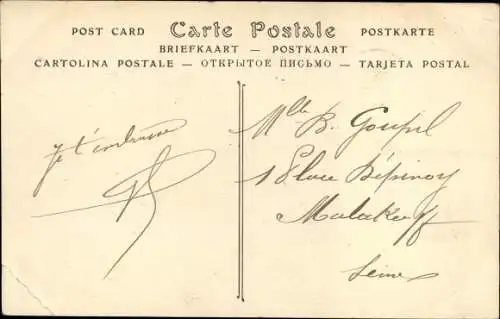 POST CARD Carte Postale POSTKARTE
BRIEFKAART — POSTKAART
CARTOLINA POSTALE — ОТКРЫТОЕ ПИСЬМО — TARJETA POSTAL
Je t'embrasse
Mlle B. Goupil
1 Place Dépinoy
Malakoff
Seine